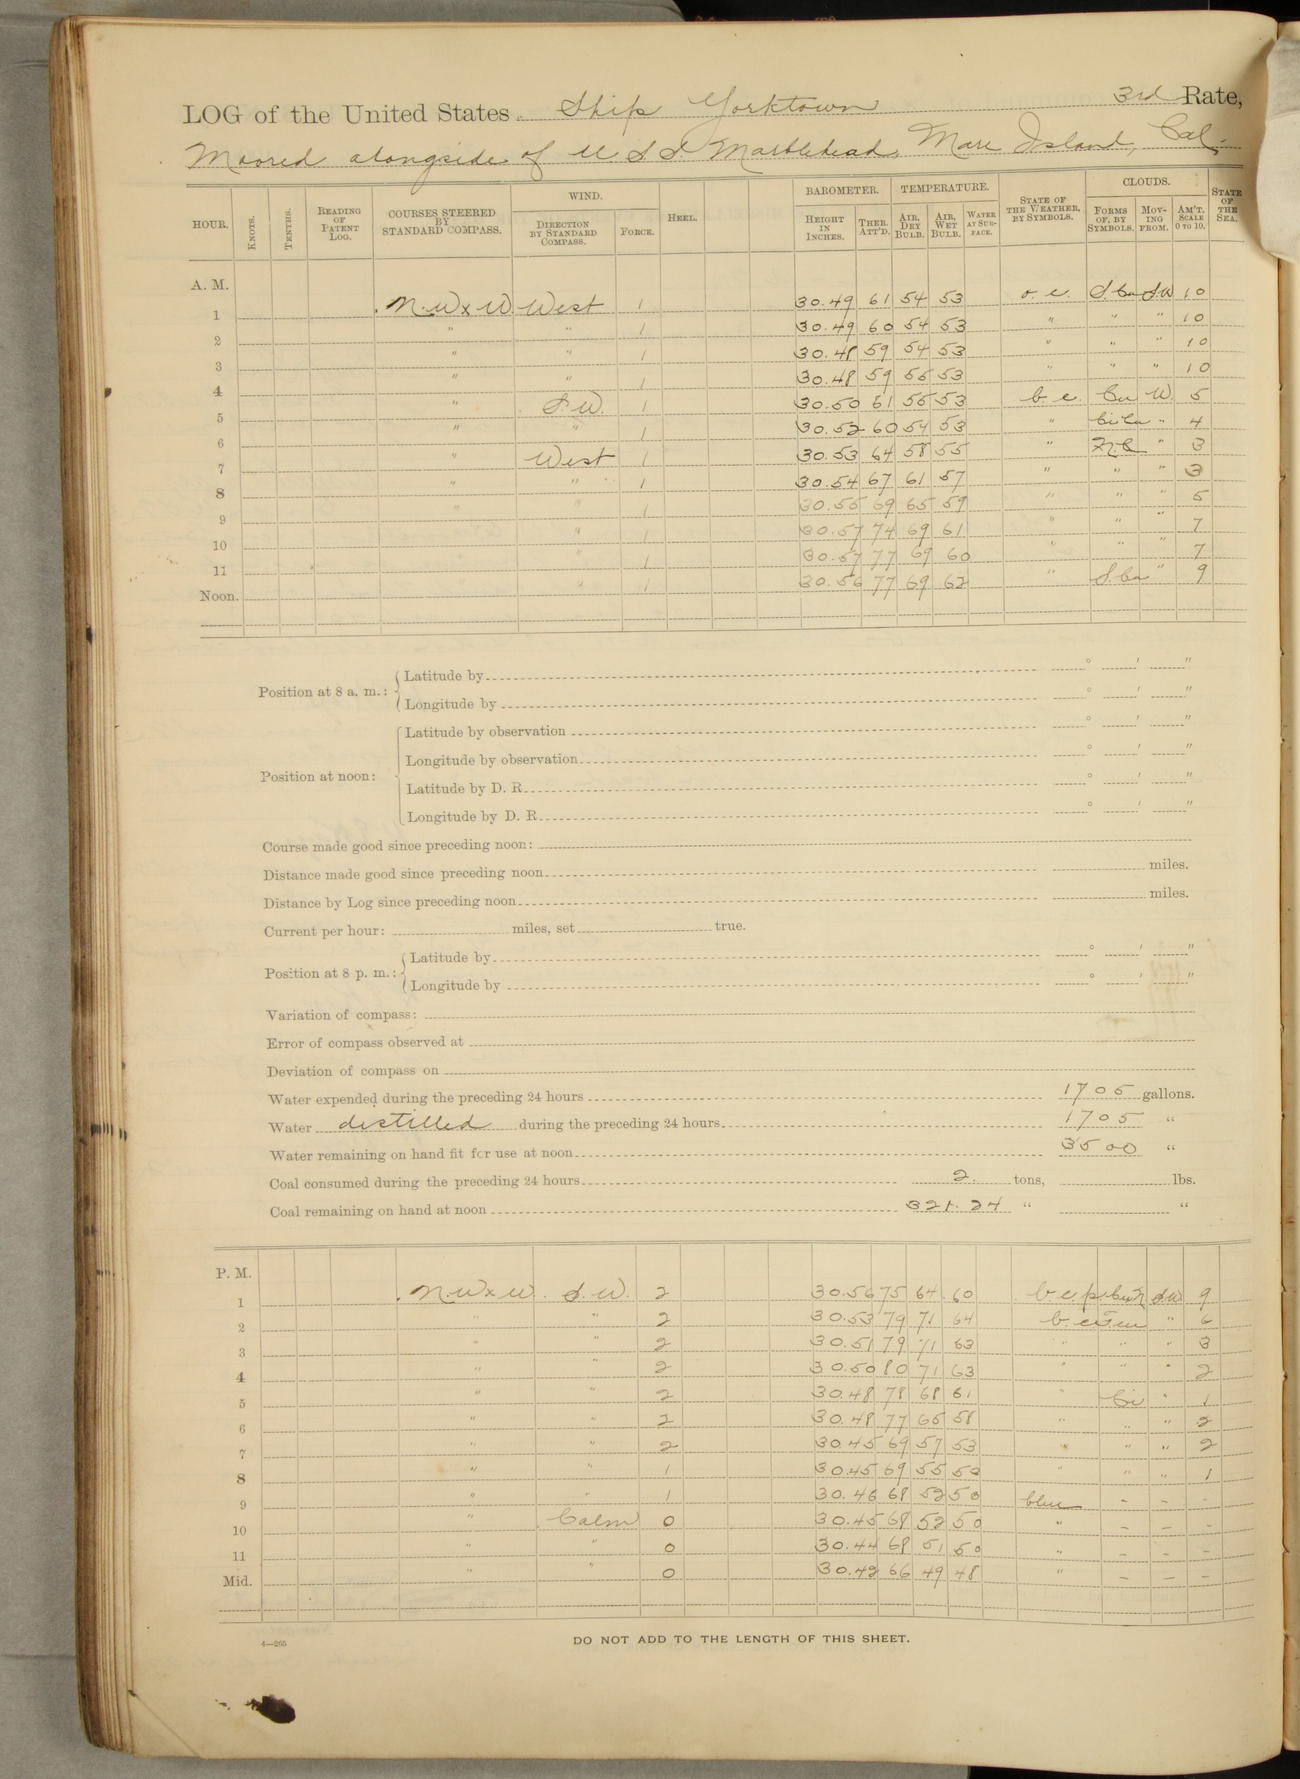 LOG of the United States Ship Yorktown 3rd Rate,
Moored alongside of U.S.S. Marblehead, Mare Island, Cal.
HOUR. KNOTS. TENTHS. READING OF PATENT LOG. COURSES STEERED BY STANDARD COMPASS. WIND. DIRECTION BY STANDARD COMPASS. FORCE. HEEL. BAROMETER. HEIGHT IN INCHES. THER. ATT'D. TEMPERATURE. AIR, DRY BULB. AIR, WET BULB. WATER AT SURFACE. STATE OF THE WEATHER, BY SYMBOLS. CLOUDS. FORMS OF, BY SYMBOLS. MOVING FROM. AM'T. SCALE 0 TO 10. STATE OF THE SEA.
A. M.
1 N.W x W West 1 30.49 61 54 53 o.c. S.Cu S.W 10
2 " " 1 30.49 60 54 53 " " " 10
3 " " 1 30.48 59 54 53 " " " 10
4 " " 1 30.48 59 55 53 " " " 10
5 " S.W. 1 30.50 61 55 53 b.c. Cu W. 5
6 " " 1 30.52 60 54 53 " Ci Cu " 4
7 " West 1 30.53 64 58 55 " " 3
8 " " 1 30.54 67 61 57 " " " 3
9 " " 1 30.55 69 65 59 " " " 5
10 " 1 30.57 74 69 61 " " " 7
11 " 1 30.57 77 69 60 " " " 7
Noon. " 1 30.56 77 69 62 " S.Cu " 9
Position at 8 a. m.: Latitude by ° ' "
Longitude by ° ' "
Position at noon: Latitude by observation ° ' "
Longitude by observation ° ' "
Latitude by D. R. ° ' "
Longitude by D. R. ° ' "
Course made good since preceding noon:
Distance made good since preceding noon miles.
Distance by Log since preceding noon miles.
Current per hour: miles, set true.
Position at 8 p. m.: Latitude by ° ' "
Longitude by ° ' "
Variation of compass:
Error of compass observed at
Deviation of compass on
Water expended during the preceding 24 hours 1705 gallons.
Water distilled during the preceding 24 hours 1705 "
Water remaining on hand fit for use at noon 3500 "
Coal consumed during the preceding 24 hours 2. tons, lbs.
Coal remaining on hand at noon 321.24 " "
P. M.
1 N.W x W. S.W. 2 30.56 75 64 60 S.W 9
2 " " 2 30.53 79 71 64 " 6
3 " " 2 30.51 79 71 63 " " " 3
4 " " 2 30.50 80 71 63 " " " 2
5 " " 2 30.48 78 68 61 " Ci " 1
6 " " 2 30.48 77 65 58 " " " 2
7 " " 2 30.45 69 57 53 " " " 2
8 " " 1 30.45 69 55 52 " " " 1
9 " " 1 30.46 68 52 50 blue - - -
10 " Calm 0 30.45 68 52 50 " - - -
11 " " 0 30.44 68 51 50 " - - -
Mid. " " 0 30.42 66 49 48 " - - -
4—265
DO NOT ADD TO THE LENGTH OF THIS SHEET.